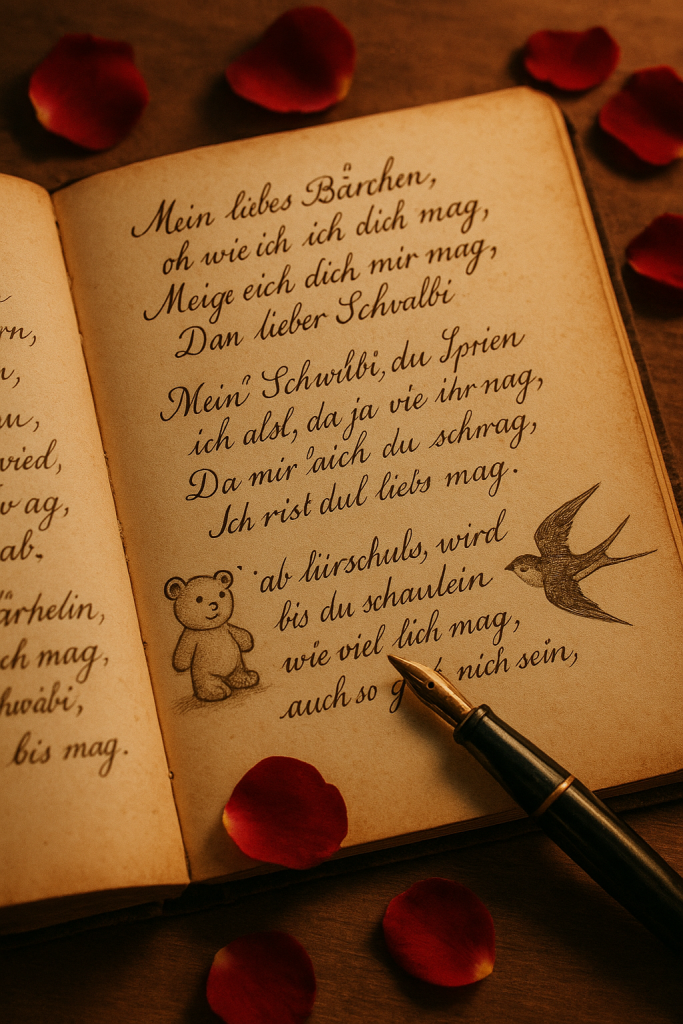 rn,
n,
vied,
ag,
ab.
ärhelin,
ch mag,
hwäbi,
bis mag.
Mein liebes Bärchen,
oh wie ich ich dich mag,
Meige eich dich mir mag,
Dan lieber Schvalbi
Mein" Schwülbi, du Sprien
ich alsl, da ja vie ihr nag,
Da mir aich du schmrag,
Ich rist dul liebs mag.
ab lürschuls, wird
bis du schaulein
wie viel lich mag,
auch so nich sein,